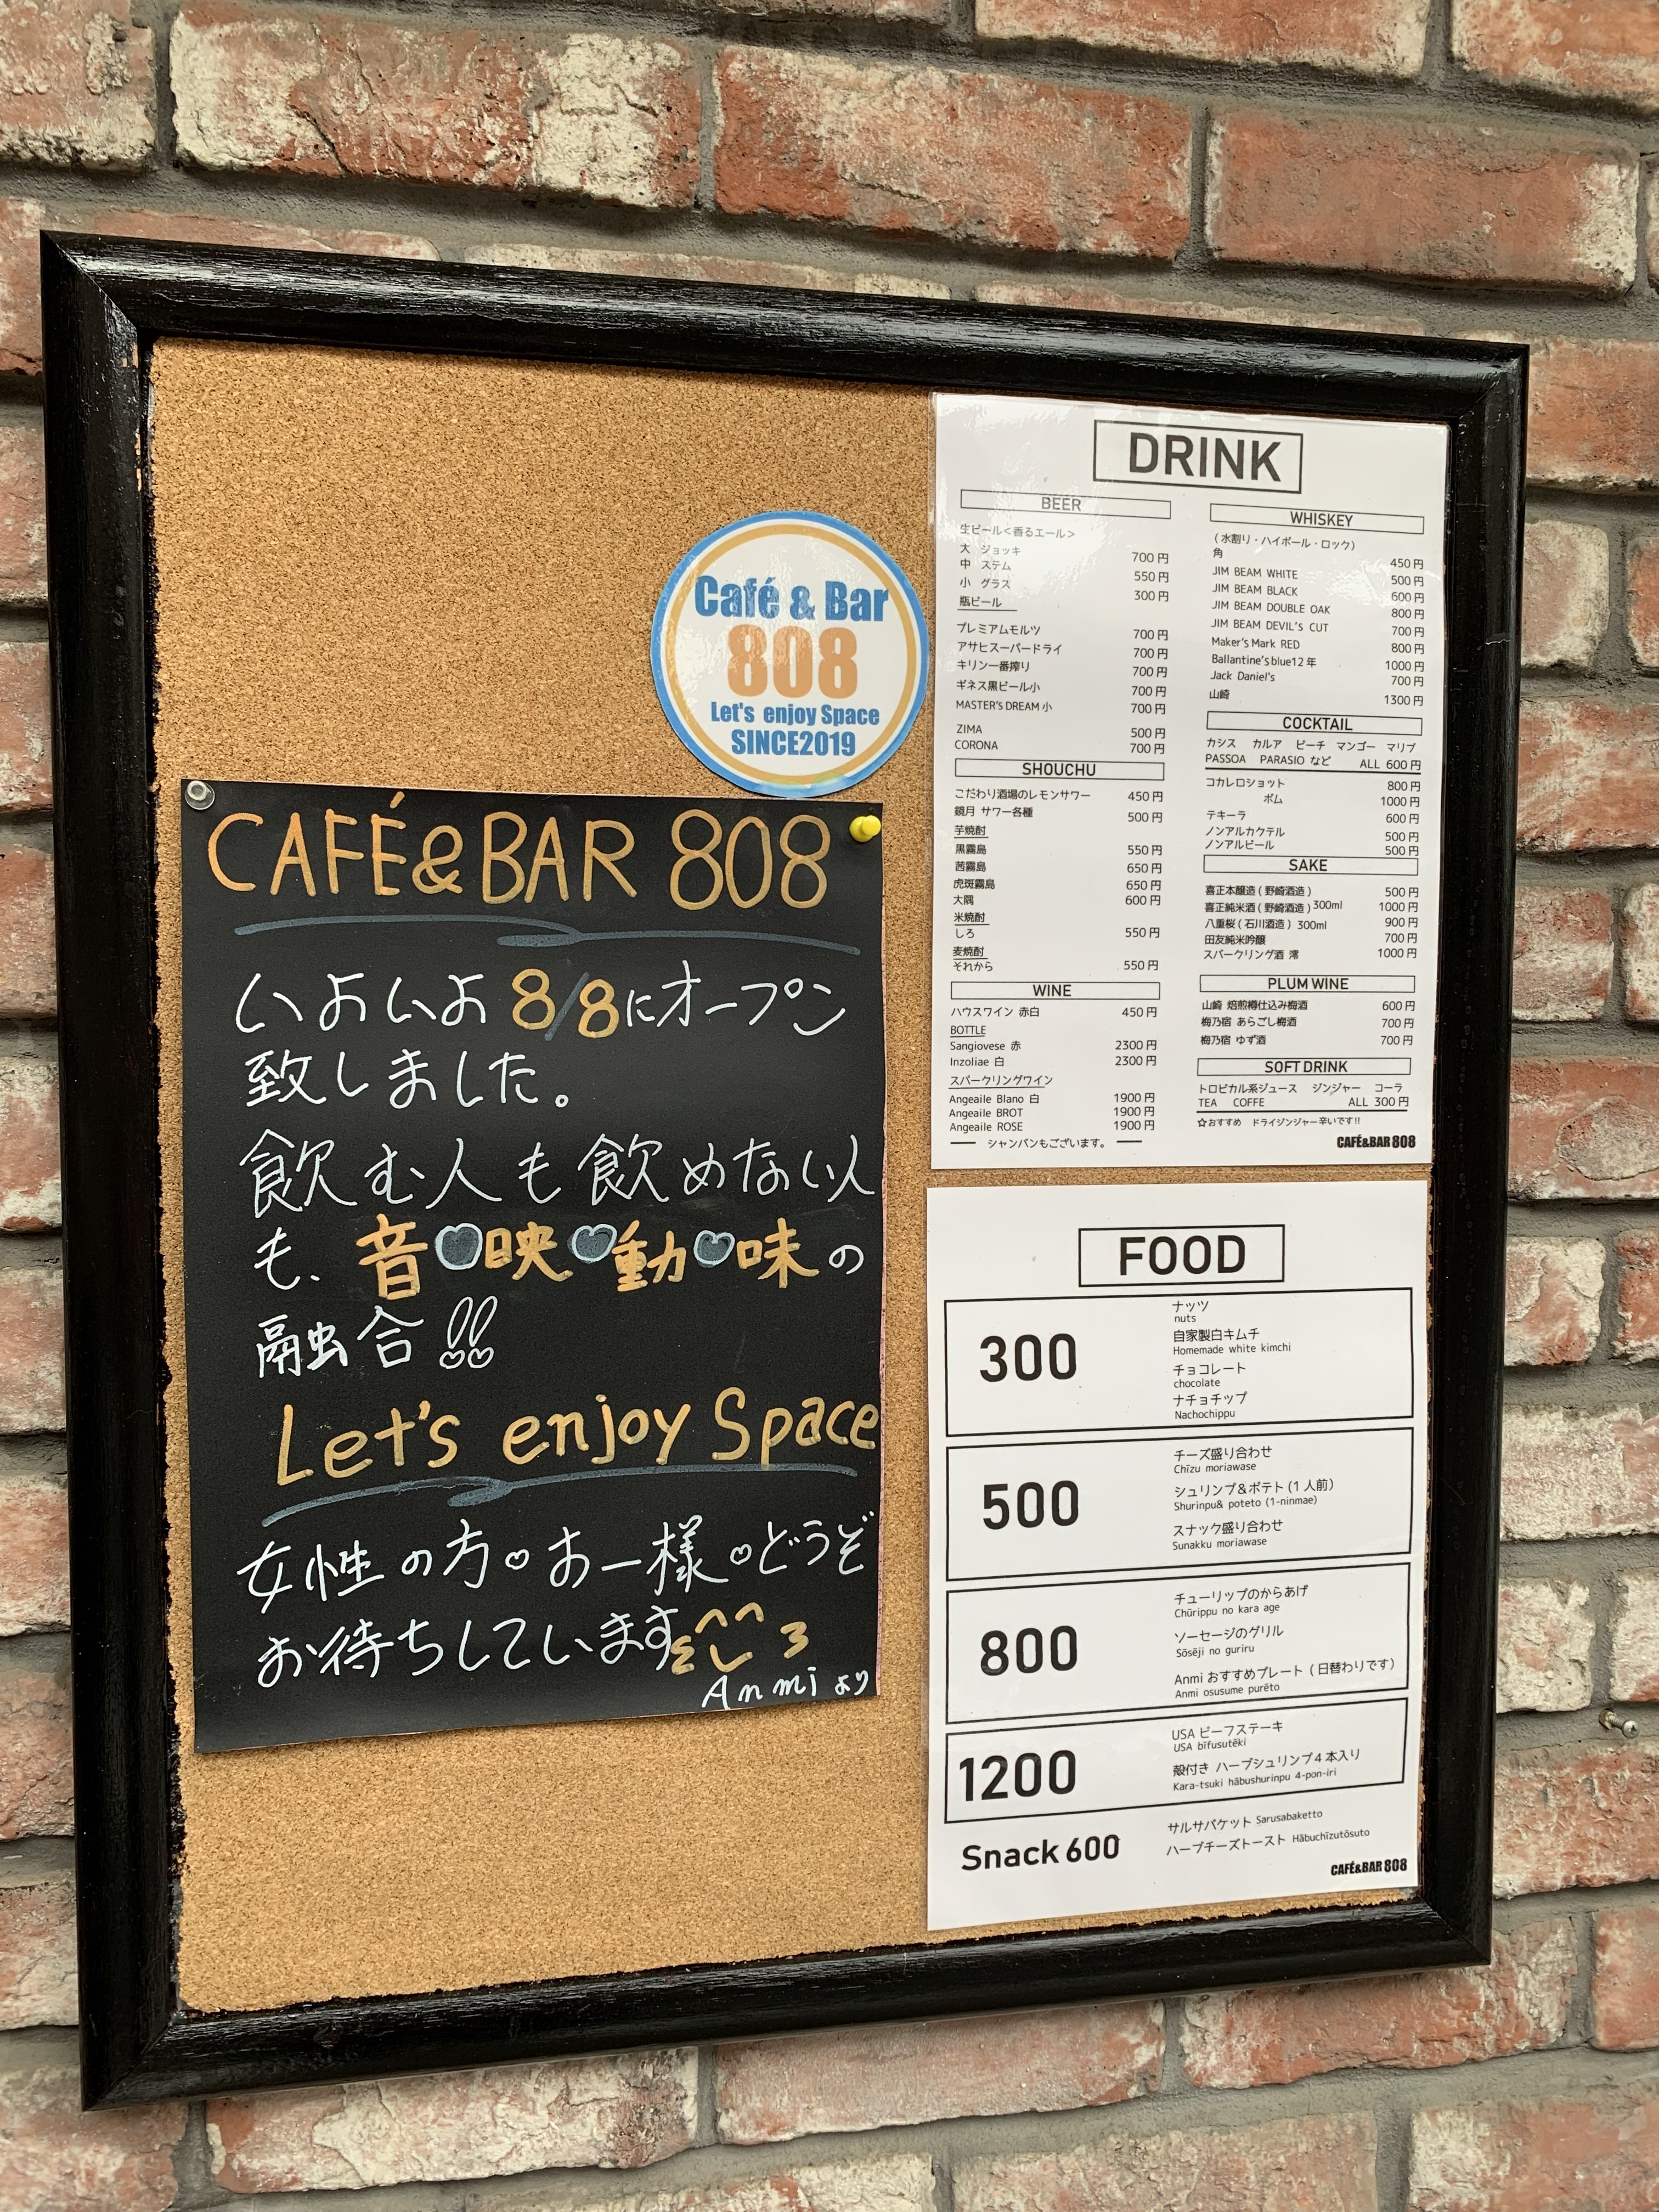 Café & Bar
808
Let's enjoy Space
SINCE2019
CAFÉ&BAR 808
いよいよ 8/8にオープン
致しました。
飲む人も飲めない人
も、音♡映♡動♡味の
融合!!
Let's enjoy Space
女性の方。お一様。どうぞ
お待ちしています
Anmiより
DRINK
BEER
生ビール<香るエール>
大 ジョッキ 700円
中 ステム 550円
小 グラス 300円
瓶ビール
プレミアムモルツ 700円
アサヒスーパードライ 700円
キリン一番搾り 700円
ギネス黒ビール小 700円
MASTER'S DREAM 小 700円
ZIMA 500円
CORONA 700円
SHOUCHU
こだわり酒場のレモンサワー 450円
鏡月 サワー各種 500円
芋焼酎
黒霧島 550円
茜霧島 650円
虎斑霧島 650円
大隅 600円
米焼酎
しろ 550円
麦焼酎
それから 550円
WINE
ハウスワイン 赤白 450円
BOTTLE
Sangiovese 赤 2300円
Inzoliae 白 2300円
スパークリングワイン
Angeaile Blano 白 1900円
Angeaile BROT 1900円
Angeaile ROSE 1900円
シャンパンもございます。
WHISKEY
(水割り・ハイボール・ロック)
角 450円
JIM BEAM WHITE 500円
JIM BEAM BLACK 600円
JIM BEAM DOUBLE OAK 800円
JIM BEAM DEVIL'S CUT 700円
Maker's Mark RED 800円
Ballantine's blue12年 1000円
Jack Daniel's 700円
山崎 1300円
COCKTAIL
カシス カルア ピーチ マンゴー マリブ
PASSOA PARASIO など ALL 600円
コカレロショット 800円
ボム 1000円
テキーラ 600円
ノンアルカクテル 500円
ノンアルビール 500円
SAKE
喜正本醸造(野崎酒造) 500円
喜正純米酒(野崎酒造)300ml 1000円
八重桜(石川酒造)300ml 900円
田友純米吟醸 700円
スパークリング酒 澪 1000円
PLUM WINE
山崎 焙煎樽仕込み梅酒 600円
梅乃宿 あらごし梅酒 700円
梅乃宿 ゆず酒 700円
SOFT DRINK
トロピカル系ジュース ジンジャー コーラ
TEA COFFE ALL 300円
☆おすすめ ドライジンジャー辛いです!!
CAFÉ&BAR 808
FOOD
300
ナッツ
nuts
自家製白キムチ
Homemade white kimchi
チョコレート
chocolate
ナチョチップ
Nachochippu
500
チーズ盛り合わせ
Chīzu moriawase
シュリンプ&ポテト(1人前)
Shurinpu& poteto (1-ninmae)
スナック盛り合わせ
Sunakku moriawase
800
チューリップのからあげ
Chūrippu no kara age
ソーセージのグリル
Sōsēji no guriru
Anmi おすすめプレート(日替わりです)
Anmi osusume purēto
1200
USA ビーフステーキ
USA bīfusutēki
殻付き ハーブシュリンプ4本入り
Kara-tsuki hābushurinpu 4-pon-iri
Snack 600
サルサバケット Sarusabaketto
ハーブチーズトースト Hābuchīzutōsuto
CAFÉ&BAR 808